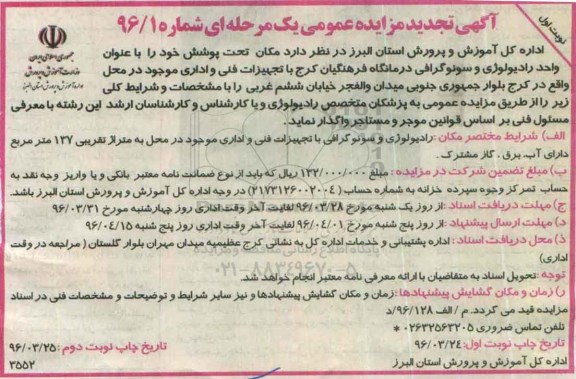 نوبت اول
آگهی تجدید مزایده عمومی یک مرحله ای شماره ۹۶/۱
اداره کل آموزش و پرورش استان البرز در نظر دارد مکان تحت پوشش خود را با عنوان
واحد رادیولوژی و سونوگرافی درمانگاه فرهنگیان کرج با تجهیزات فنی و اداری موجود در محل
واقع در کرج بلوار جمهوری جنوبی میدان والفجر خیابان ششم غربی را با مشخصات و شرایط کلی
زیر را از طریق مزایده عمومی به پزشکان متخصص رادیولوژی و یا کارشناس و کارشناسان ارشد این رشته با معرفی
مسئول فنی بر اساس قوانین موجر و مستاجر واگذار نماید.
الف) شرایط مختصر مکان: رادیولوژی و سونوگرافی با تجهیزات فنی و اداری موجود در محل به متراژ تقریبی ۱۳۷ متر مربع
دارای آب، برق، گاز مشترک.
ب) مبلغ تضمین شرکت در مزایده: مبلغ ۱۳۲/۰۰۰/۰۰۰ ریال که باید از نوع ضمانت نامه معتبر بانکی و یا واریز وجه نقد به
حساب تمرکز وجوه سپرده خزانه به شماره حساب (۲۱۷۳۱۲۶۰۰۲۰۰۴) در وجه اداره کل آموزش و پرورش استان البرز باشد.
ج) مهلت دریافت اسناد: از روز یک شنبه مورخ ۹۶/۰۳/۲۸ لغایت آخر وقت اداری روز چهارشنبه مورخ ۹۶/۰۳/۳۱
د) مهلت ارسال پیشنهاد: از روز پنج شنبه مورخ ۹۶/۰۴/۰۱ لغایت آخر وقت اداری روز پنج شنبه ۹۶/۰۴/۱۵
ذ) محل دریافت اسناد: اداره پشتیبانی و خدمات اداره کل به نشانی کرج عظیمیه میدان مهران بلوار گلستان (مراجعه در وقت
اداری)
توجه: تحویل اسناد به متقاضیان با ارائه معرفی نامه معتبر انجام خواهد شد.
ر) زمان و مکان گشایش پیشنهادها: زمان و مکان گشایش پیشنهادها و نیز سایر شرایط و توضیحات و مشخصات فنی در اسناد
مزایده قید می گردد. م / الف ۹۶/۱۲۸/د
تلفن تماس ضروری ۰۲۶۳۲۵۶۳۲۰۵ *
تاریخ چاپ نوبت اول: ۹۶/۰۳/۲۴ تاریخ چاپ نوبت دوم: ۹۶/۰۳/۲۵
اداره کل آموزش و پرورش استان البرز ۳۵۵۲